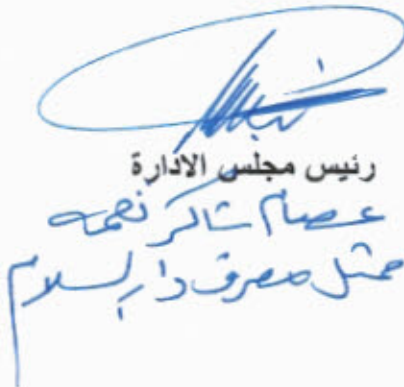 رئيس مجلس الادارة
عصام شاكر نعمه
ممثل مصرف دار السلام